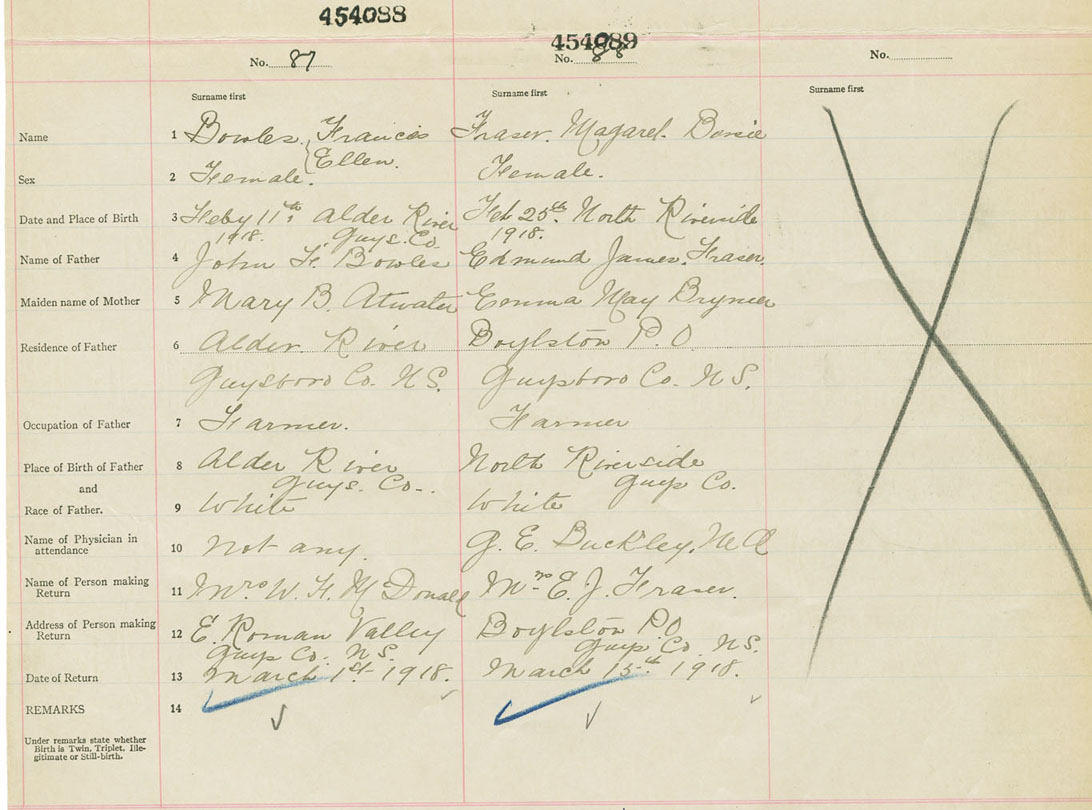 454088
454089
No. 87
No. 88
No.
Surname first
Surname first
Surname first
Name 1 Bowles, Francis Fraser. Magaret.
Ellen.
Sex 2 Female. Female.
Date and Place of Birth 3 Feby 11th Alder River Feb 25th North Riverside
1918. Guys. Co. 1918.
Name of Father 4 John F. Bowles Edmund James. Fraser.
Maiden name of Mother 5 Mary B. Atwater Emma May
Residence of Father 6 Alder River Boylston P.O
Guysboro Co. N.S. Guysboro Co. N.S.
Occupation of Father 7 Farmer. Farmer
Place of Birth of Father 8 Alder River North Riverside
and Guys. Co. Guys Co.
Race of Father. 9 White White
Name of Physician in
attendance 10 not any. G. E. Buckley.
Name of Person making
Return 11 Mrs. W. H. Mc Donald Mrs E. J. Fraser.
Address of Person making
Return 12 E. Roman Valley Boylston P.O
Guys Co. N.S. Guys Co. N.S.
Date of Return 13 March 1st 1918. March 15th 1918.
REMARKS 14
Under remarks state whether
Birth is Twin, Triplet, Ille-
gitimate or Still-birth.